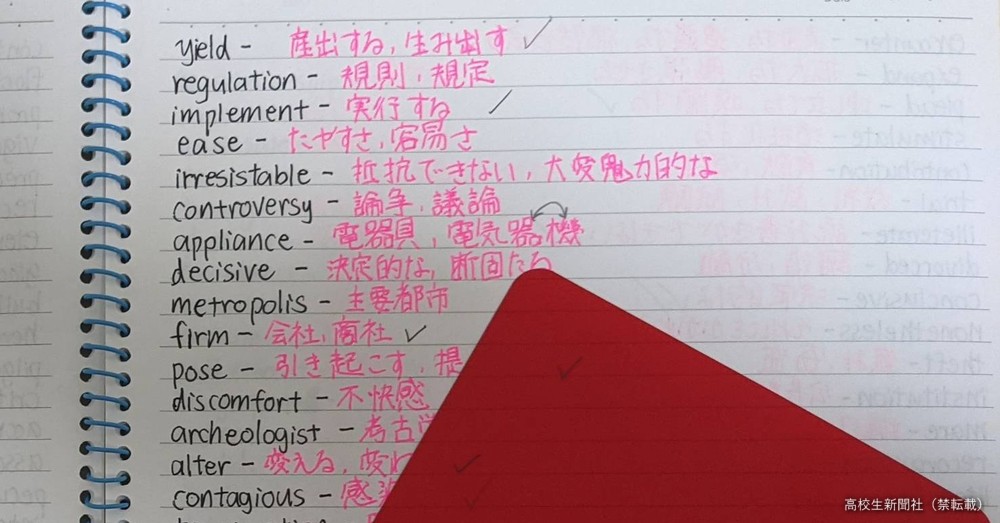 yield - 産出する, 生み出す
regulation - 規則, 規定
implement - 実行する
ease - たやすさ, 容易さ
irresistable - 抵抗できない, 大変魅力的な
controversy - 論争, 議論
appliance - 電器具, 電気器機
decisive - 決定的な, 断固たる
metropolis - 主要都市
firm - 会社, 商社
pose - 引き起こす, 提
discomfort - 不快感
archeologist - 考古
alter - 変える, 変わ
contagious - 感
高校生新聞社（禁転載）